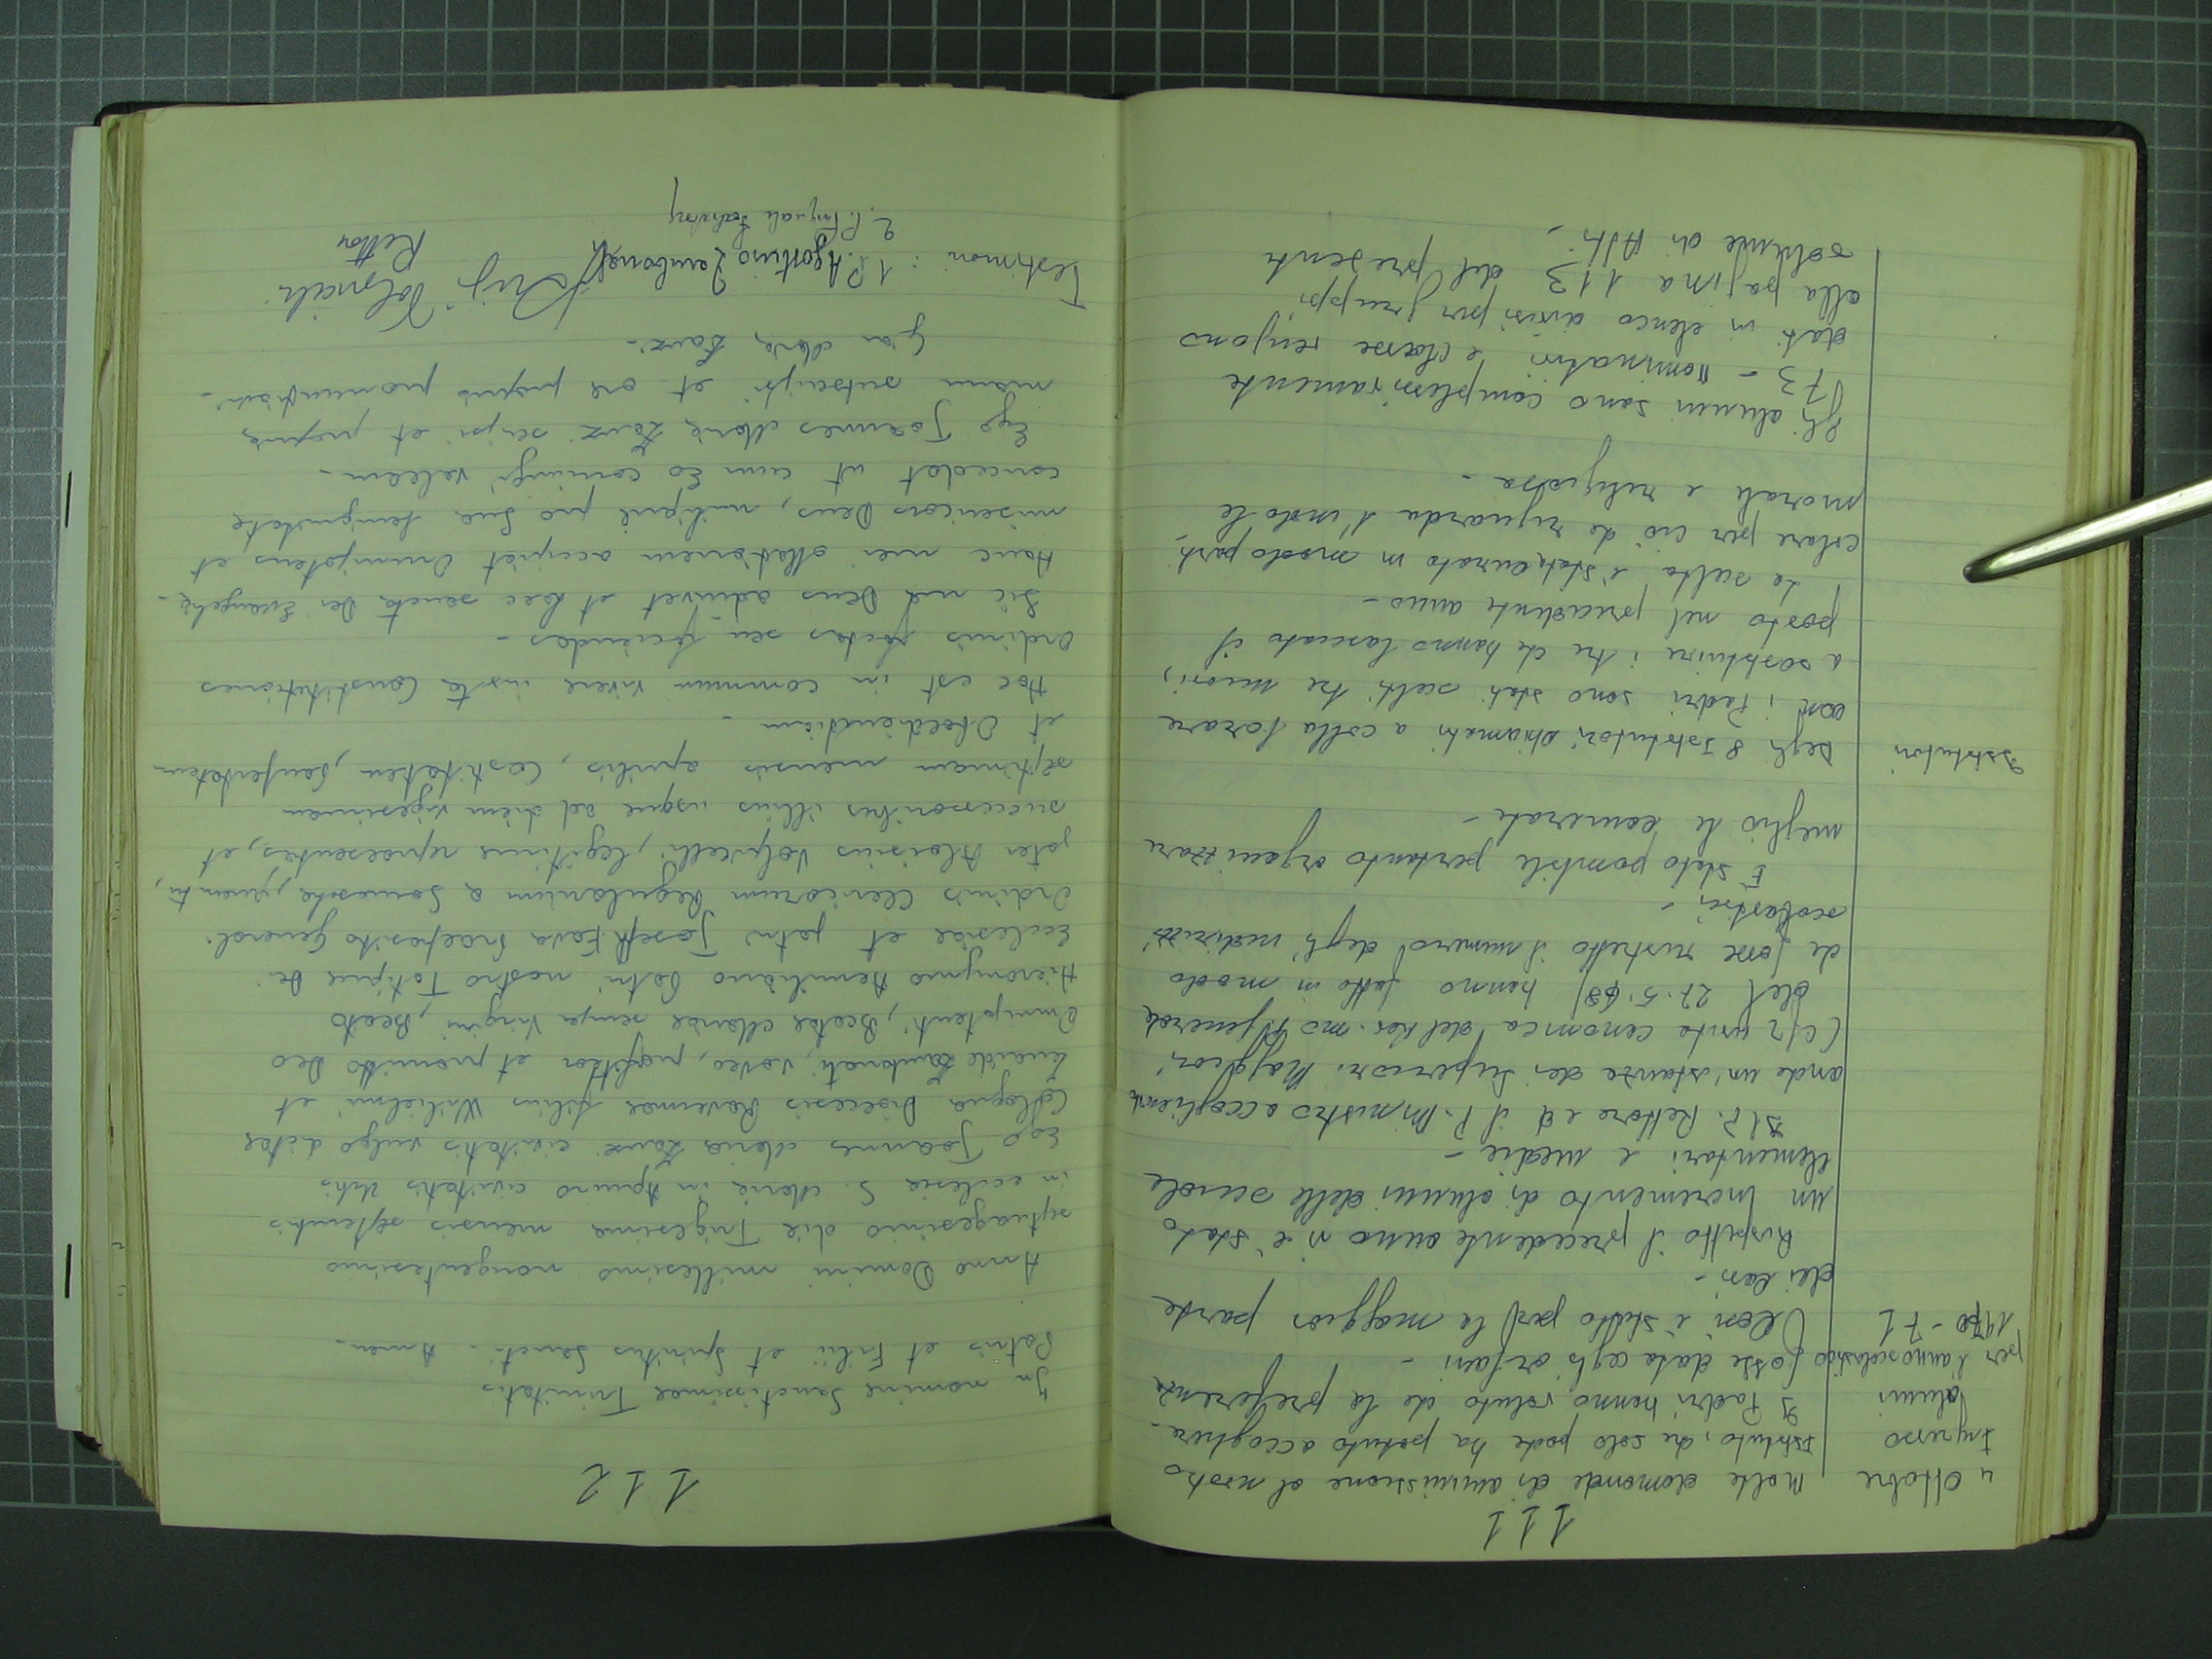 111
4 Ottobre
Ingresso
alunni
per l'anno scolastico
1970-71
Molte domande di ammissione al nostro
Istituto, che solo poche ha potuto accogliere.
I Padri hanno voluto che la preferenza
fosse data agli orfani -
Così è stato per la maggior parte
dei casi -
Rispetto il precedente anno vi è stato
un incremento di alunni delle scuole
elementari e medie -
Il P. Rettore ed il P. Ministro accogliendo
anche un'istanza dei Superiori Maggiori
(cfr visita canonica del Rev.mo P. Generale
del 27.5.68) hanno fatto in modo
che fosse ristretto il numero degli indirizzi
scolastici -
È stato possibile pertanto organizzare
meglio le camerate -
Istitutori
Degli 8 Istitutori chiamati a collaborare
con i Padri sono stati scelti tre nuovi,
a sostituire i tre che hanno lasciato il
posto nel precedente anno -
La scelta è stata curata in modo parti
colare per ciò che riguarda l'indole
morale e religiosa -
Gli alunni sono complessivamente
73 - nominativi e classe vengono
dati in elenco divisi per gruppi
alla pagina 113 del presente
volume di Atti -
112
In nomine Sanctissimae Trinitatis
Patris et Filii et Spiritus Sancti - Amen -
Anno Domini millesimo nongentesimo
septuagesimo die Trigesima mensis septembris
in ecclesia S. Maria in Aquiro civitatis
Ego Joannes Maria Zauz. civitatis vulgo dictae
Diocesis Ravennae filius Wilielmi et
Zambonati, voveo, profiteor et promitto Deo
Omnipotenti, Beatae Mariae semper Virgini, Beato
Hieronymo Aemiliano Patri nostro Totique Dei
Ecclesiae et patri Joseph Fava Praeposito Generali
Ordinis Clericorum Regularium a Somascha,
pater Aloisius Volpicelli, legitime representas, et
successoribus illius usque ad diem vigesimam
septimam mensis aprilis, Castitatem, Paupertatem
et Obedientiam -
Hoc est in commun vivere iuxta Constitutiones
Ordinis factas seu faciendas -
Sic me Deus adiuvet et haec sancta Dei Evangelia -
Hanc mei oblationem accipiet Omnipotens et
misericors Deus, mihique pro Sua benignitate
concedat ut cum Eo coniungi valeam -
Ego Joannes Maria Zauz. scripsi et propria
manu subscripsi et ore proprio pronuntiavi -
Gian Maria Zauz. -
Testimoni: 1 P. Agostino Zambonati
2. P. Pasquale
Luigi Volpicelli
Rettore